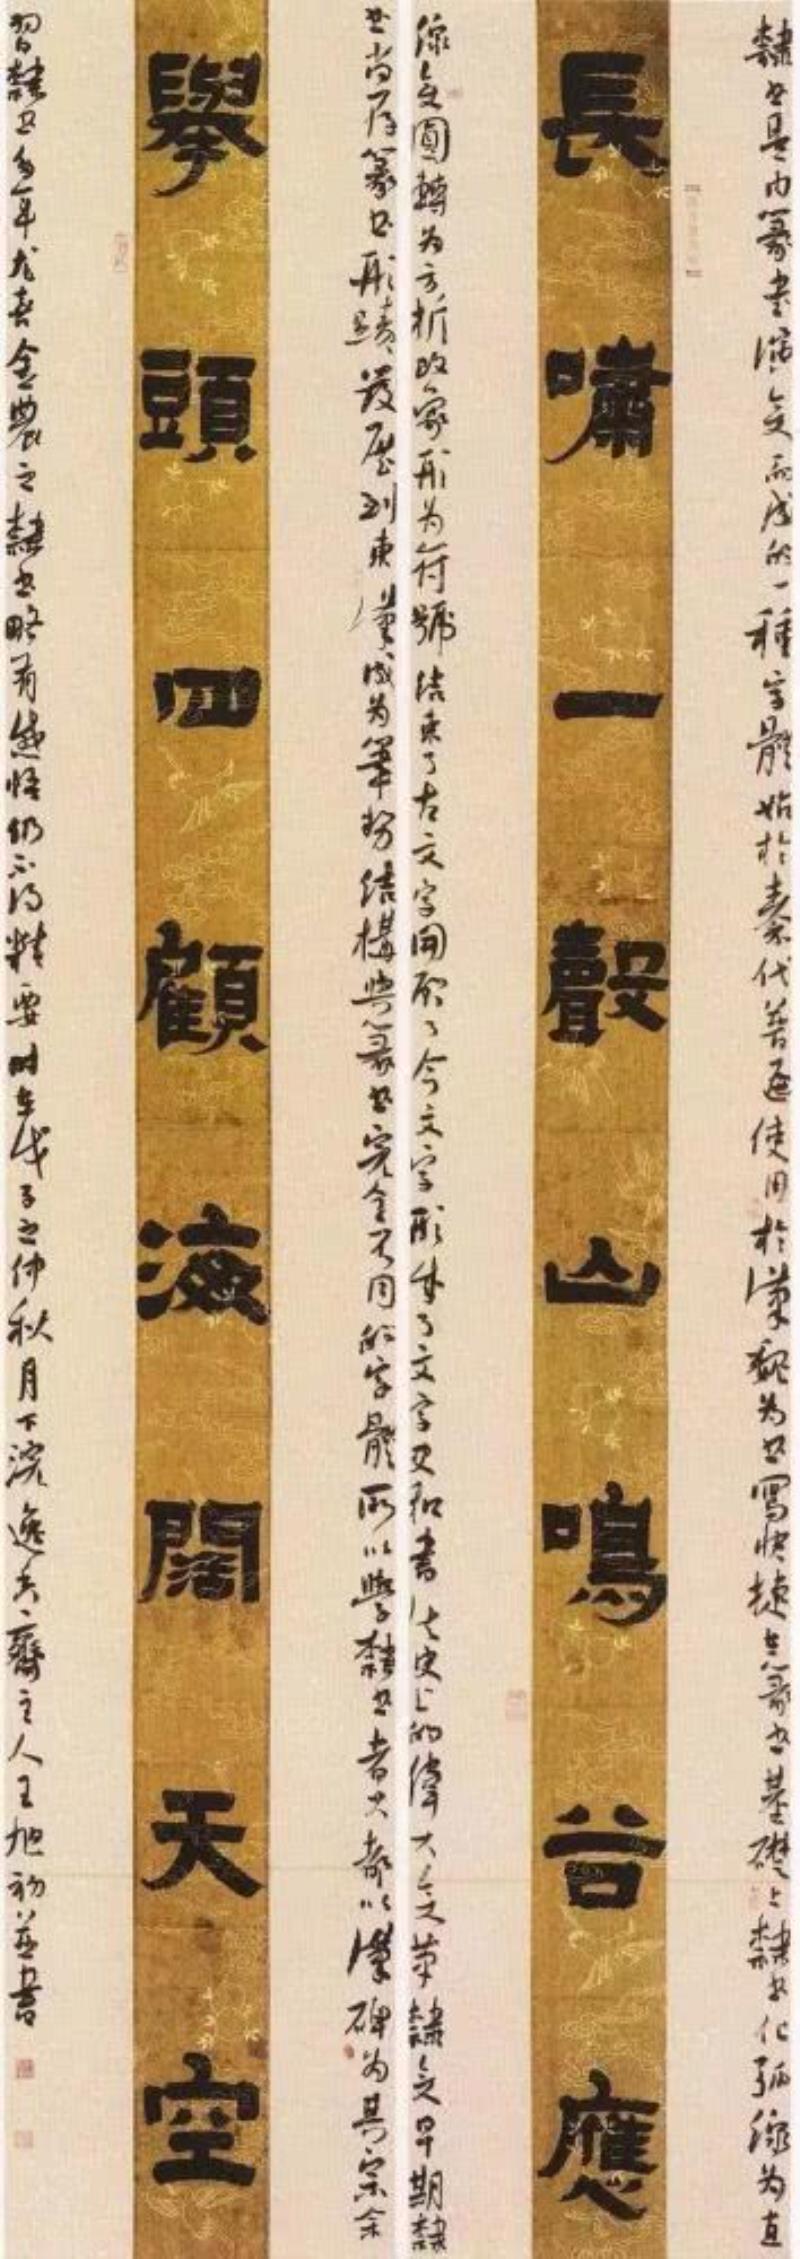 隸書是由篆書演變而成的一種字體始於秦代普遍使用於漢魏為書寫快捷在篆書基礎上隸書化弧線為直
長嘯一聲山鳴谷應
線變圓轉為方折改象形為符號結束了古文字開啟了今文字形成了文字史和書法史上的偉大變革隸變早期隸
書尚存篆書形蹟發展到東漢成為筆勢結構與篆書完全不同的字體所以學隸書者大都以漢碑為其宗余
舉頭四顧海闊天空
習隸書多年尤喜金農之隸書略有感悟仍不得精要時在戊子之仲秋月下浣逸夫齋主人王旭初並書